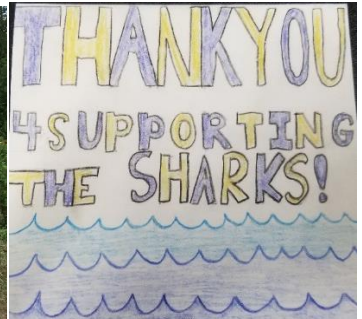 THANKYOU
4SUPPORTING
THE SHARKS!